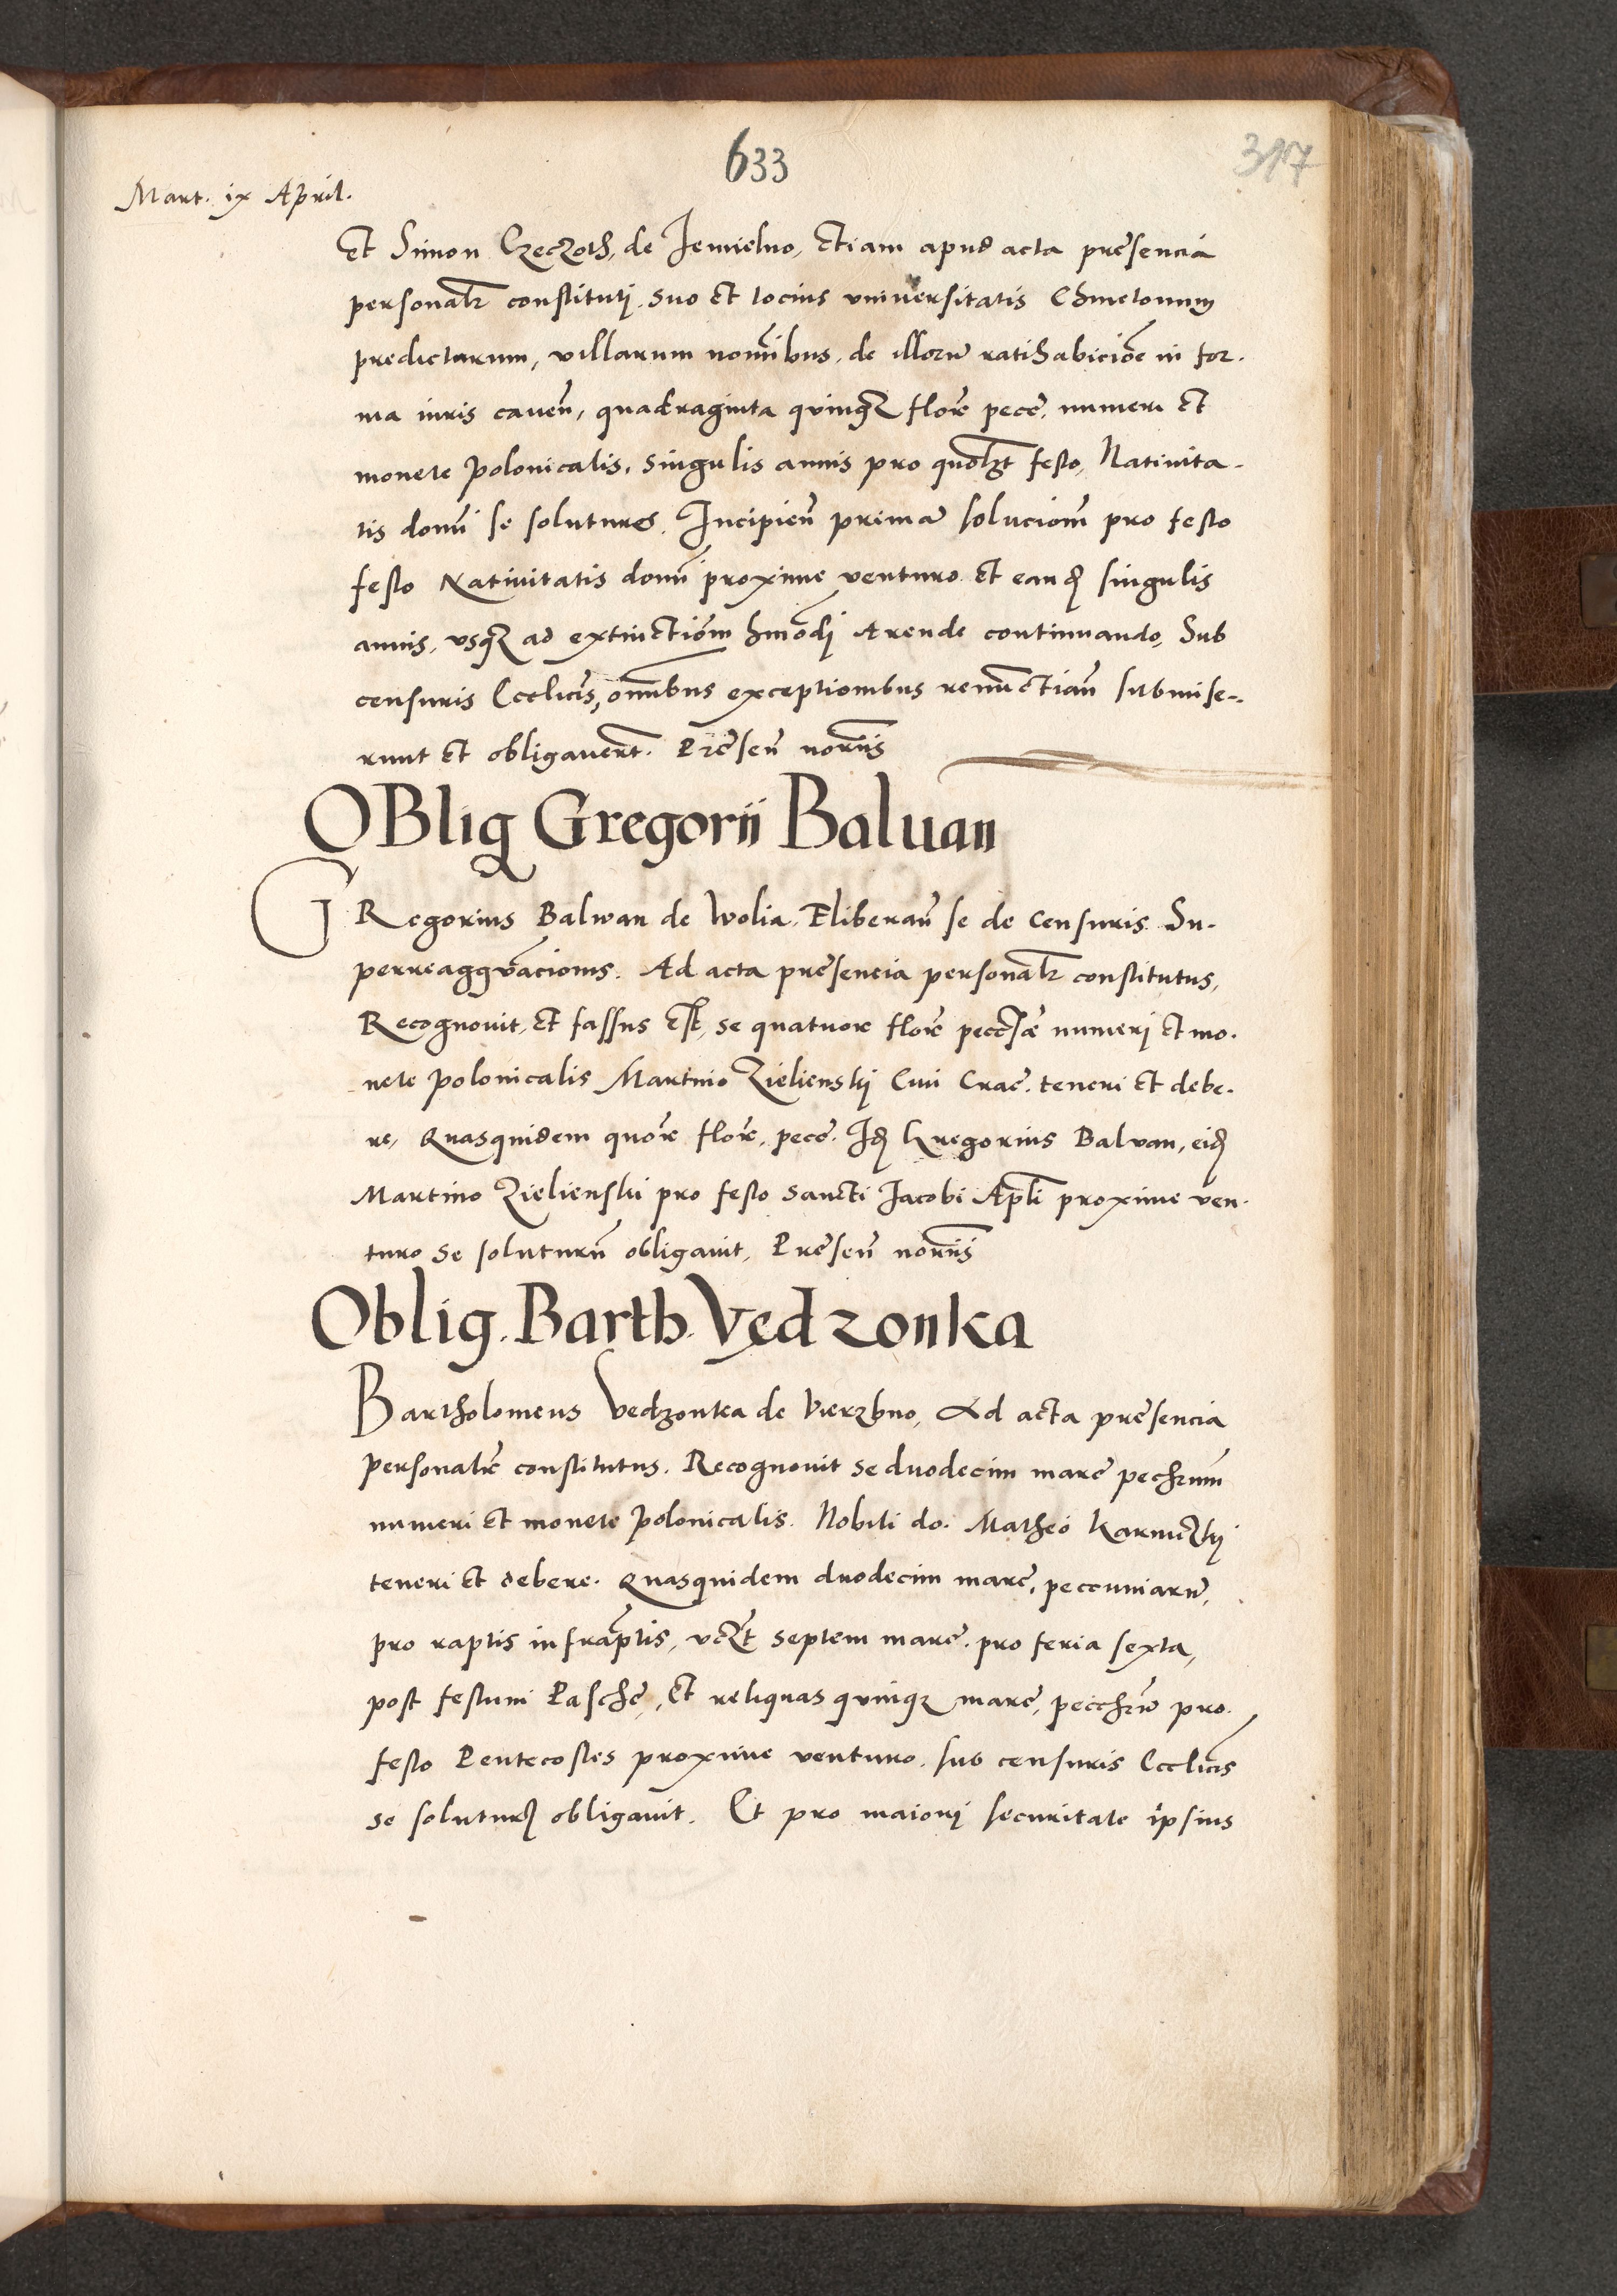 633
317
Mart. ix April.
Et Simon Czeczoth, de Jemielno, etiam apud acta presencia
personalr constituti. suo et tocius universitatis Chmetonum
predictarum, villarum nominibus. de illorum ratihabicione in for-
ma iuris caven, quadraginta quinque floren pecc. numeri et
monete polonicalis, singulis annis pro quolibet festo, Nativita-
tis domini se soluturos. Incipien primam solucionem pro festo
festo Nativitatis domini proxime venturo. et eandem singulis
annis, usque ad extinctionem hmodi Arende continuando, Sub
censuris Ecclicis, omnibus exceptionibus renunctian submise-
runt et obligaverunt. Presen notariis
OBlig Gregorii Baluan
GRegorius Balwan de Wolia. Eliberan se de Censuris Su-
perreaggravacionis. Ad acta presencia personalr constitutus,
Recognovit, et fassus est, se quatuor floren pecciae numeri et mo-
nete polonicalis Martino Zielienski Civi Crac. teneri et debe-
re, Quasquidem quatuor floren. pecc. Idem Gregorius Balvan, eidem
Martino Zielienski pro festo sancti Jacobi Apli proxime ven-
turo se soluturum obligavit, Presen notariis
Oblig. Barth. Vedzonka
Bartholomeus Vedzonka de Vierzbno, Ad acta presencia
personalr constitutus. Recognovit se duodecim marc pecchrum
numeri et monete polonicalis. Nobili do. Matheo Karniczki
teneri et debere. Quasquidem duodecim marc, peccuniarum,
pro raptis infraptis, vczt septem marc. pro feria sexta,
post festum Pasche, et reliquas quinque marc, pecchrum pro
festo Pentecostes proxime venturo. sub censuris Ecclicis
se soluturum obligavit. Et pro maiori securitate ipsius